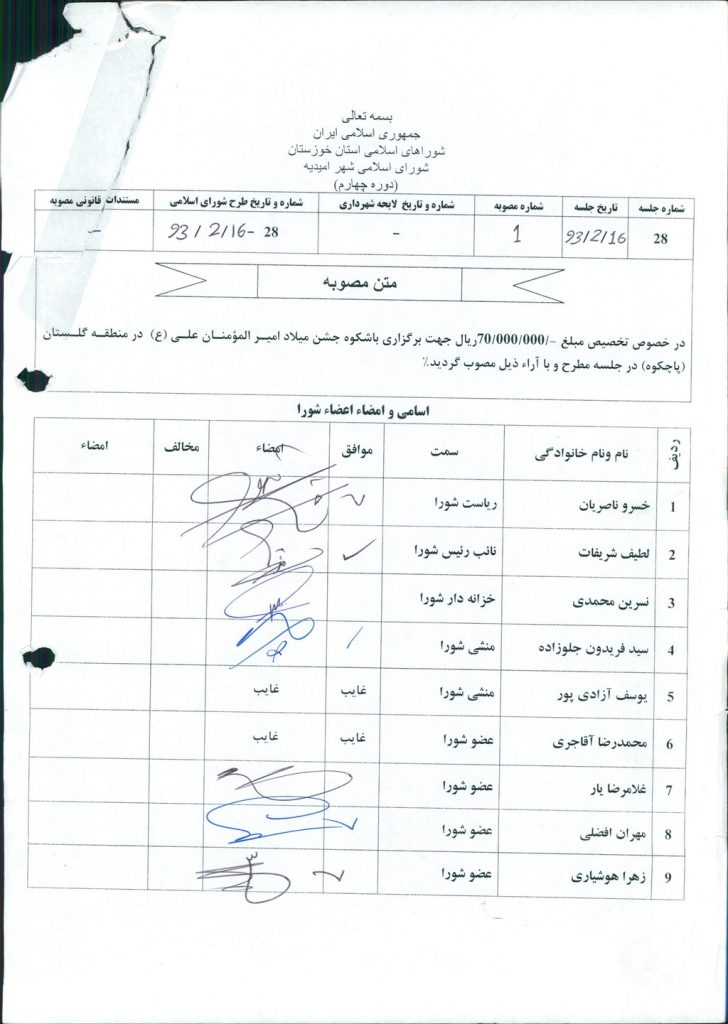 بسمه تعالی
جمهوری اسلامی ایران
شوراهای اسلامی استان خوزستان
شورای اسلامی شهر امیدیه
(دوره چهارم)
شماره جلسه تاریخ جلسه شماره مصوبه شماره و تاریخ لایحه شهرداری شماره و تاریخ طرح شورای اسلامی مستندات قانونی مصوبه
28 93/2/16 1 - 28 -93/2/16 —
متن مصوبه
در خصوص تخصیص مبلغ -/70/000/000ریال جهت برگزاری باشکوه جشن میلاد امیر المؤمنان علی (ع) در منطقه گلستان
(پاچکوه) در جلسه مطرح و با آراء ذیل مصوب گردید٪
اسامی و امضاء اعضاء شورا
ردیف نام ونام خانوادگی سمت موافق امضاء مخالف امضاء
1 خسرو ناصریان ریاست شورا
2 لطیف شریفات نائب رئیس شورا
3 نسرین محمدی خزانه دار شورا
4 سید فریدون جلوزاده منشی شورا
5 یوسف آزادی پور منشی شورا غایب غایب
6 محمدرضا آقاجری عضو شورا غایب غایب
7 غلامرضا یار عضو شورا
8 مهران افضلی عضو شورا
9 زهرا هوشیاری عضو شورا